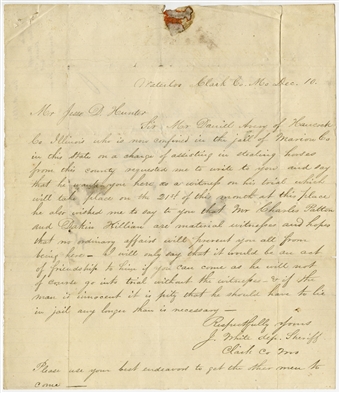 Waterloo Clark Co. Mo Dec. 10.
Mr Jesse D Hunter
Sir Mr Daniel Avery of Hancock
Co Illinois who is now confined in the jail of Marion Co
in this State on a charge of assisting in stealing horses
from this county requested me to write to you and say
that he wants you here as a witness on his trial which
will take place on the 21st of this month at this place
he also wished me to say to you that Mr Charles Patten
and William are material witnesses and hopes
that no ordinary affairs will prevent you all from
being here – I will only say that it would be an act
of friendship to him if you can come as he will not
of course go into trial without the witnesses & if the
man is innocent it is pity that he should have to lie
in jail any longer than is necessary –
Respectfully yours
J. White dep. Sheriff
Clark Co Mo
Please use your best endeavors to get the other men to
come –